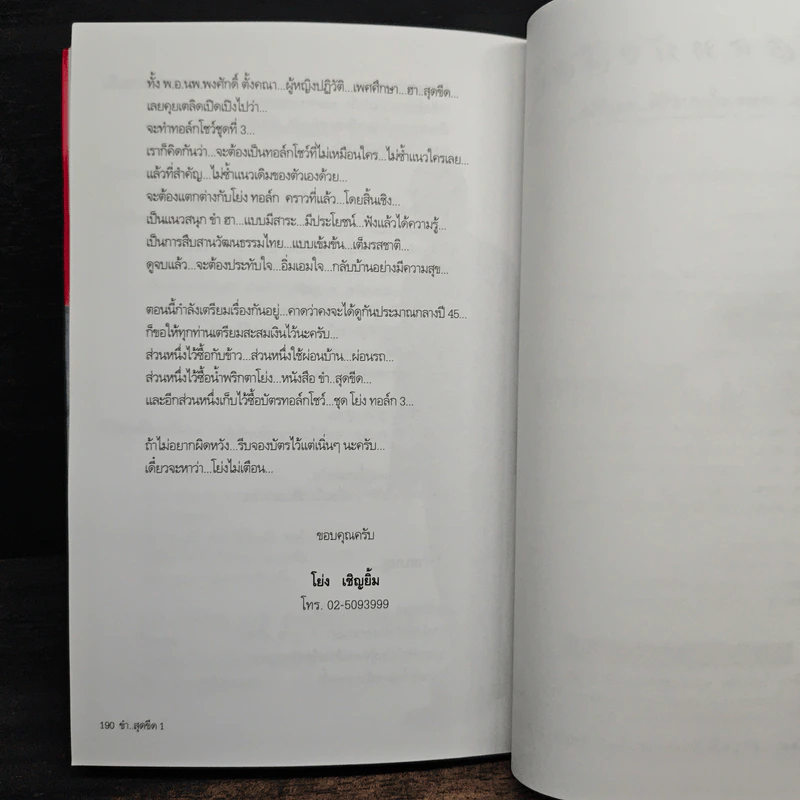 ทั้ง พ.อ.นพ.พงศักดิ์ ตั้งคณา...ผู้หญิงปฏิวัติ...เพศศึกษา...ฮา..สุดขีด...
เลยคุยเตลิดเปิดเปิงไปว่า...
จะทำทอล์กโชว์ชุดที่ 3...
เราก็คิดกันว่า...จะต้องเป็นทอล์กโชว์ที่ไม่เหมือนใคร...ไม่ซ้ำแนวใครเลย...
แล้วที่สำคัญ...ไม่ซ้ำแนวเดิมของตัวเองด้วย...
จะต้องแตกต่างกับโย่ง ทอล์ก คราวที่แล้ว...โดยสิ้นเชิง...
เป็นแนวสนุก ขำ ฮา...แบบมีสาระ...มีประโยชน์...ฟังแล้วได้ความรู้...
เป็นการสืบสานวัฒนธรรมไทย...แบบเข้มข้น...เต็มรสชาติ...
ดูจบแล้ว...จะต้องประทับใจ...อิ่มเอมใจ...กลับบ้านอย่างมีความสุข...
ตอนนี้กำลังเตรียมเรื่องกันอยู่...คาดว่าคงจะได้ดูกันประมาณกลางปี 45...
ก็ขอให้ทุกท่านเตรียมสะสมเงินไว้นะครับ...
ส่วนหนึ่งไว้ซื้อกับข้าว...ส่วนหนึ่งใช้ผ่อนบ้าน...ผ่อนรถ...
ส่วนหนึ่งไว้ซื้อน้ำพริกตาโย่ง...หนังสือ ขำ..สุดขีด...
และอีกส่วนหนึ่งเก็บไว้ซื้อบัตรทอล์กโชว์...ชุด โย่ง ทอล์ก 3...
ถ้าไม่อยากผิดหวัง...รีบจองบัตรไว้แต่เนิ่นๆ นะครับ...
เดี๋ยวจะหาว่า...โย่งไม่เตือน...
ขอบคุณครับ
โย่ง เชิญยิ้ม
โทร. 02-5093999
190 ขำ..สุดขีด 1